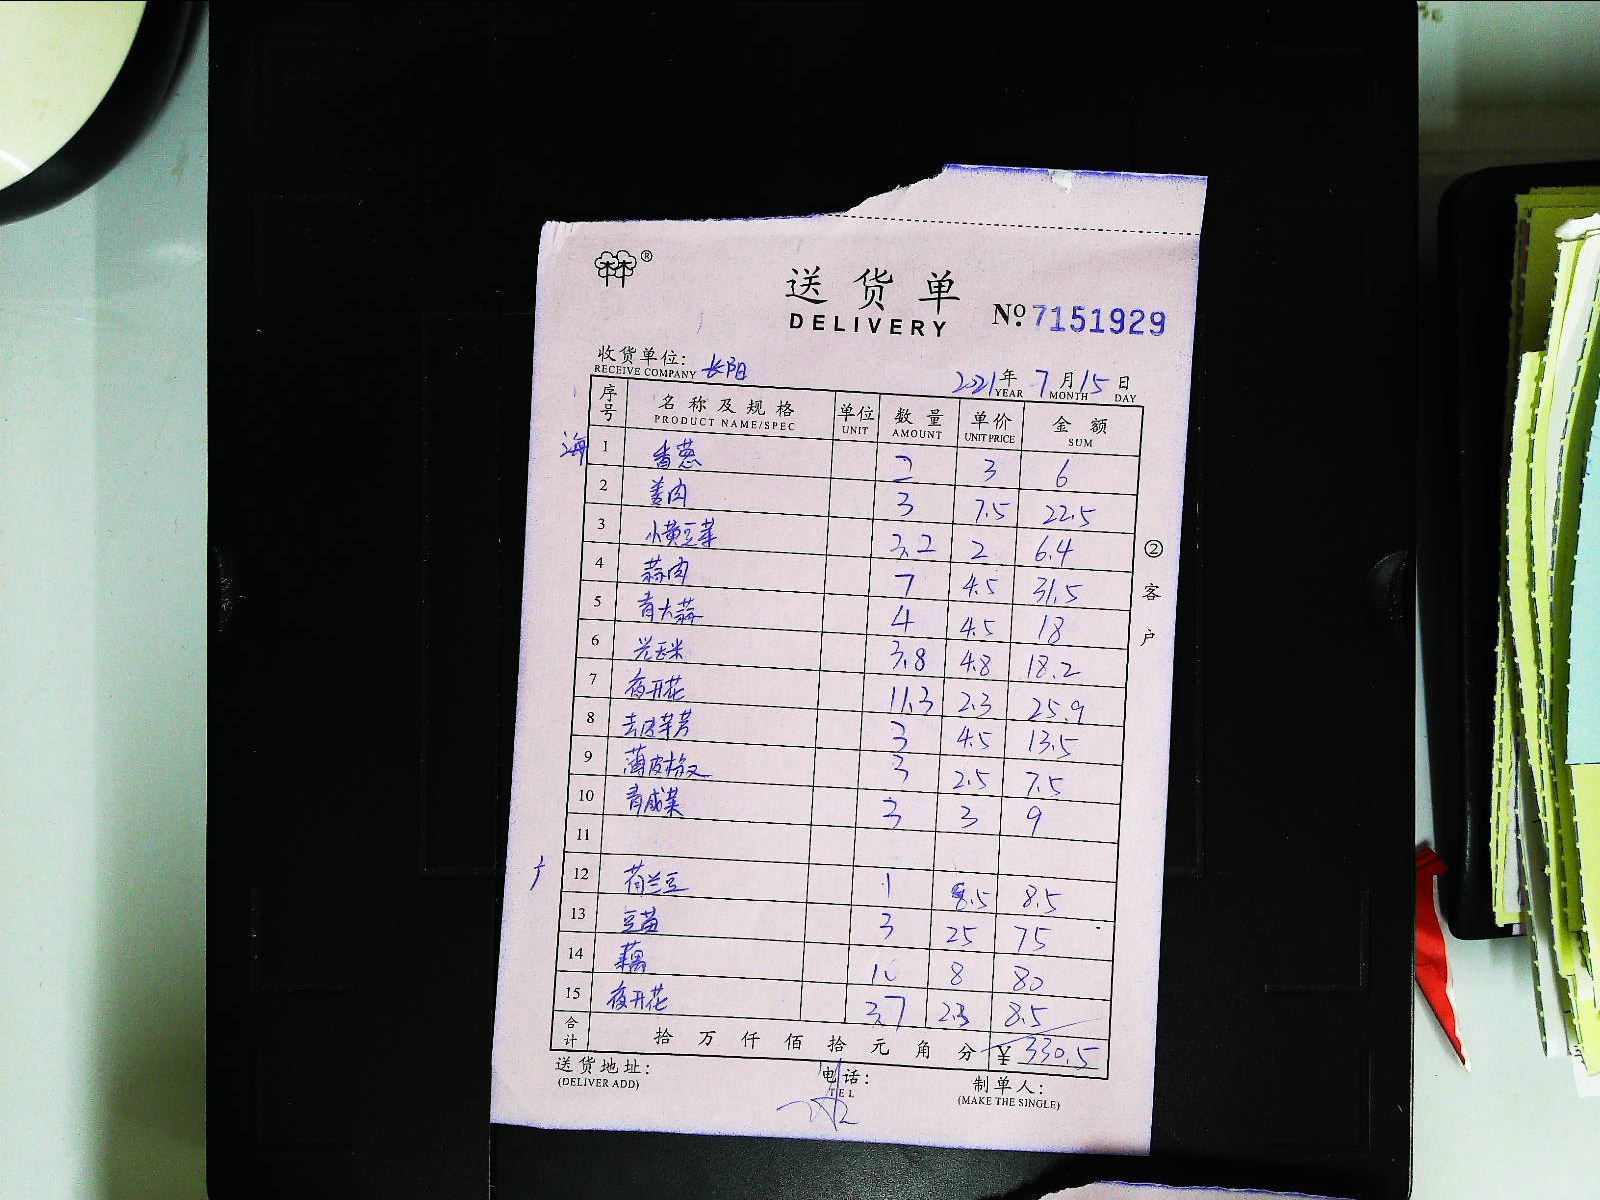 林®
送货单
DELIVERY
No. 7151929
收货单位: 长阳
RECEIVE COMPANY
2021年 7月15日
YEAR MONTH DAY
序号 名称及规格 单位 数量 单价 金额
PRODUCT NAME/SPEC UNIT AMOUNT UNIT PRICE SUM
海 1 香葱 2 3 6
2 姜肉 3 7.5 22.5
3 小黄豆芽 3.2 2 6.4
4 蒜肉 7 4.5 31.5
5 青大蒜 4 4.5 18
6 光玉米 3.8 4.8 18.2
7 夜开花 11.3 2.3 25.9
8 去皮芋艿 3 4.5 13.5
9 薄皮椒 3 2.5 7.5
10 青咸菜 3 3 9
11
12 荷兰豆 1 8.5 8.5
13 豆苗 3 25 75
14 藕 10 8 80
15 夜开花 3.7 2.3 8.5
合计 拾 万 仟 佰 拾 元 角 分 ¥ 330.5
送货地址: 电话: 制单人:
(DELIVER ADD) TEL (MAKE THE SINGLE)
②客户